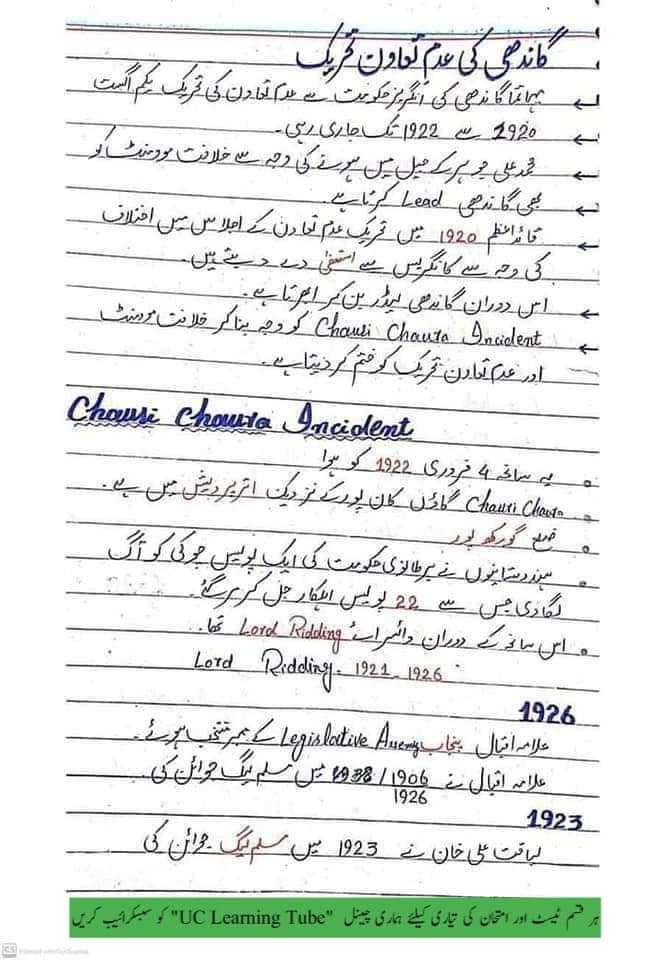 گاندھی کی عدم تعاون تحریک
مہاتما گاندھی کی انگریز حکومت سے عدم تعاون کی تحریک یکم اگست
1920 سے 1922 تک جاری رہی۔
محمد علی جوہر کے جیل میں ہونے کی وجہ سے خلافت موومنٹ کو
بھی گاندھی Lead کرتا ہے۔
قائداعظم 1920 میں تحریک عدم تعاون کے اجلاس میں اختلاف
کی وجہ سے کانگریس سے استعفیٰ دے دیتے ہیں۔
اس دوران گاندھی لیڈر بن کر ابھرتا ہے۔
Chauri Chaura Incident کو وجہ بنا کر خلافت موومنٹ
اور عدم تعاون تحریک کو ختم کر دیتا ہے۔
Chauri Chaura Incident
یہ سانحہ 4 فروری 1922 کو ہوا
Chauri Chaura گاؤں کان پور کے نزدیک اترپردیش میں ہے۔
ضلع گورکھ پور
ہندوستانیوں نے برطانوی حکومت کی ایک پولیس چوکی کو آگ
لگا دی جس سے 22 پولیس اہلکار جل کر مر گئے۔
اس سانحہ کے دوران وائسرائے Lord Ridding تھا۔
Lord Ridding. 1921-1926
1926
علامہ اقبال پنجاب Legislative کے ممبر منتخب ہوئے۔
علامہ اقبال نے 1906/ میں مسلم لیگ جوائن کی۔
1926
1923
لیاقت علی خان نے 1923 میں مسلم لیگ جوائن کی
ہر قسم ٹیسٹ اور امتحان کی تیاری کیلئے ہماری چینل "UC Learning Tube" کو سبسکرائیب کریں
CS